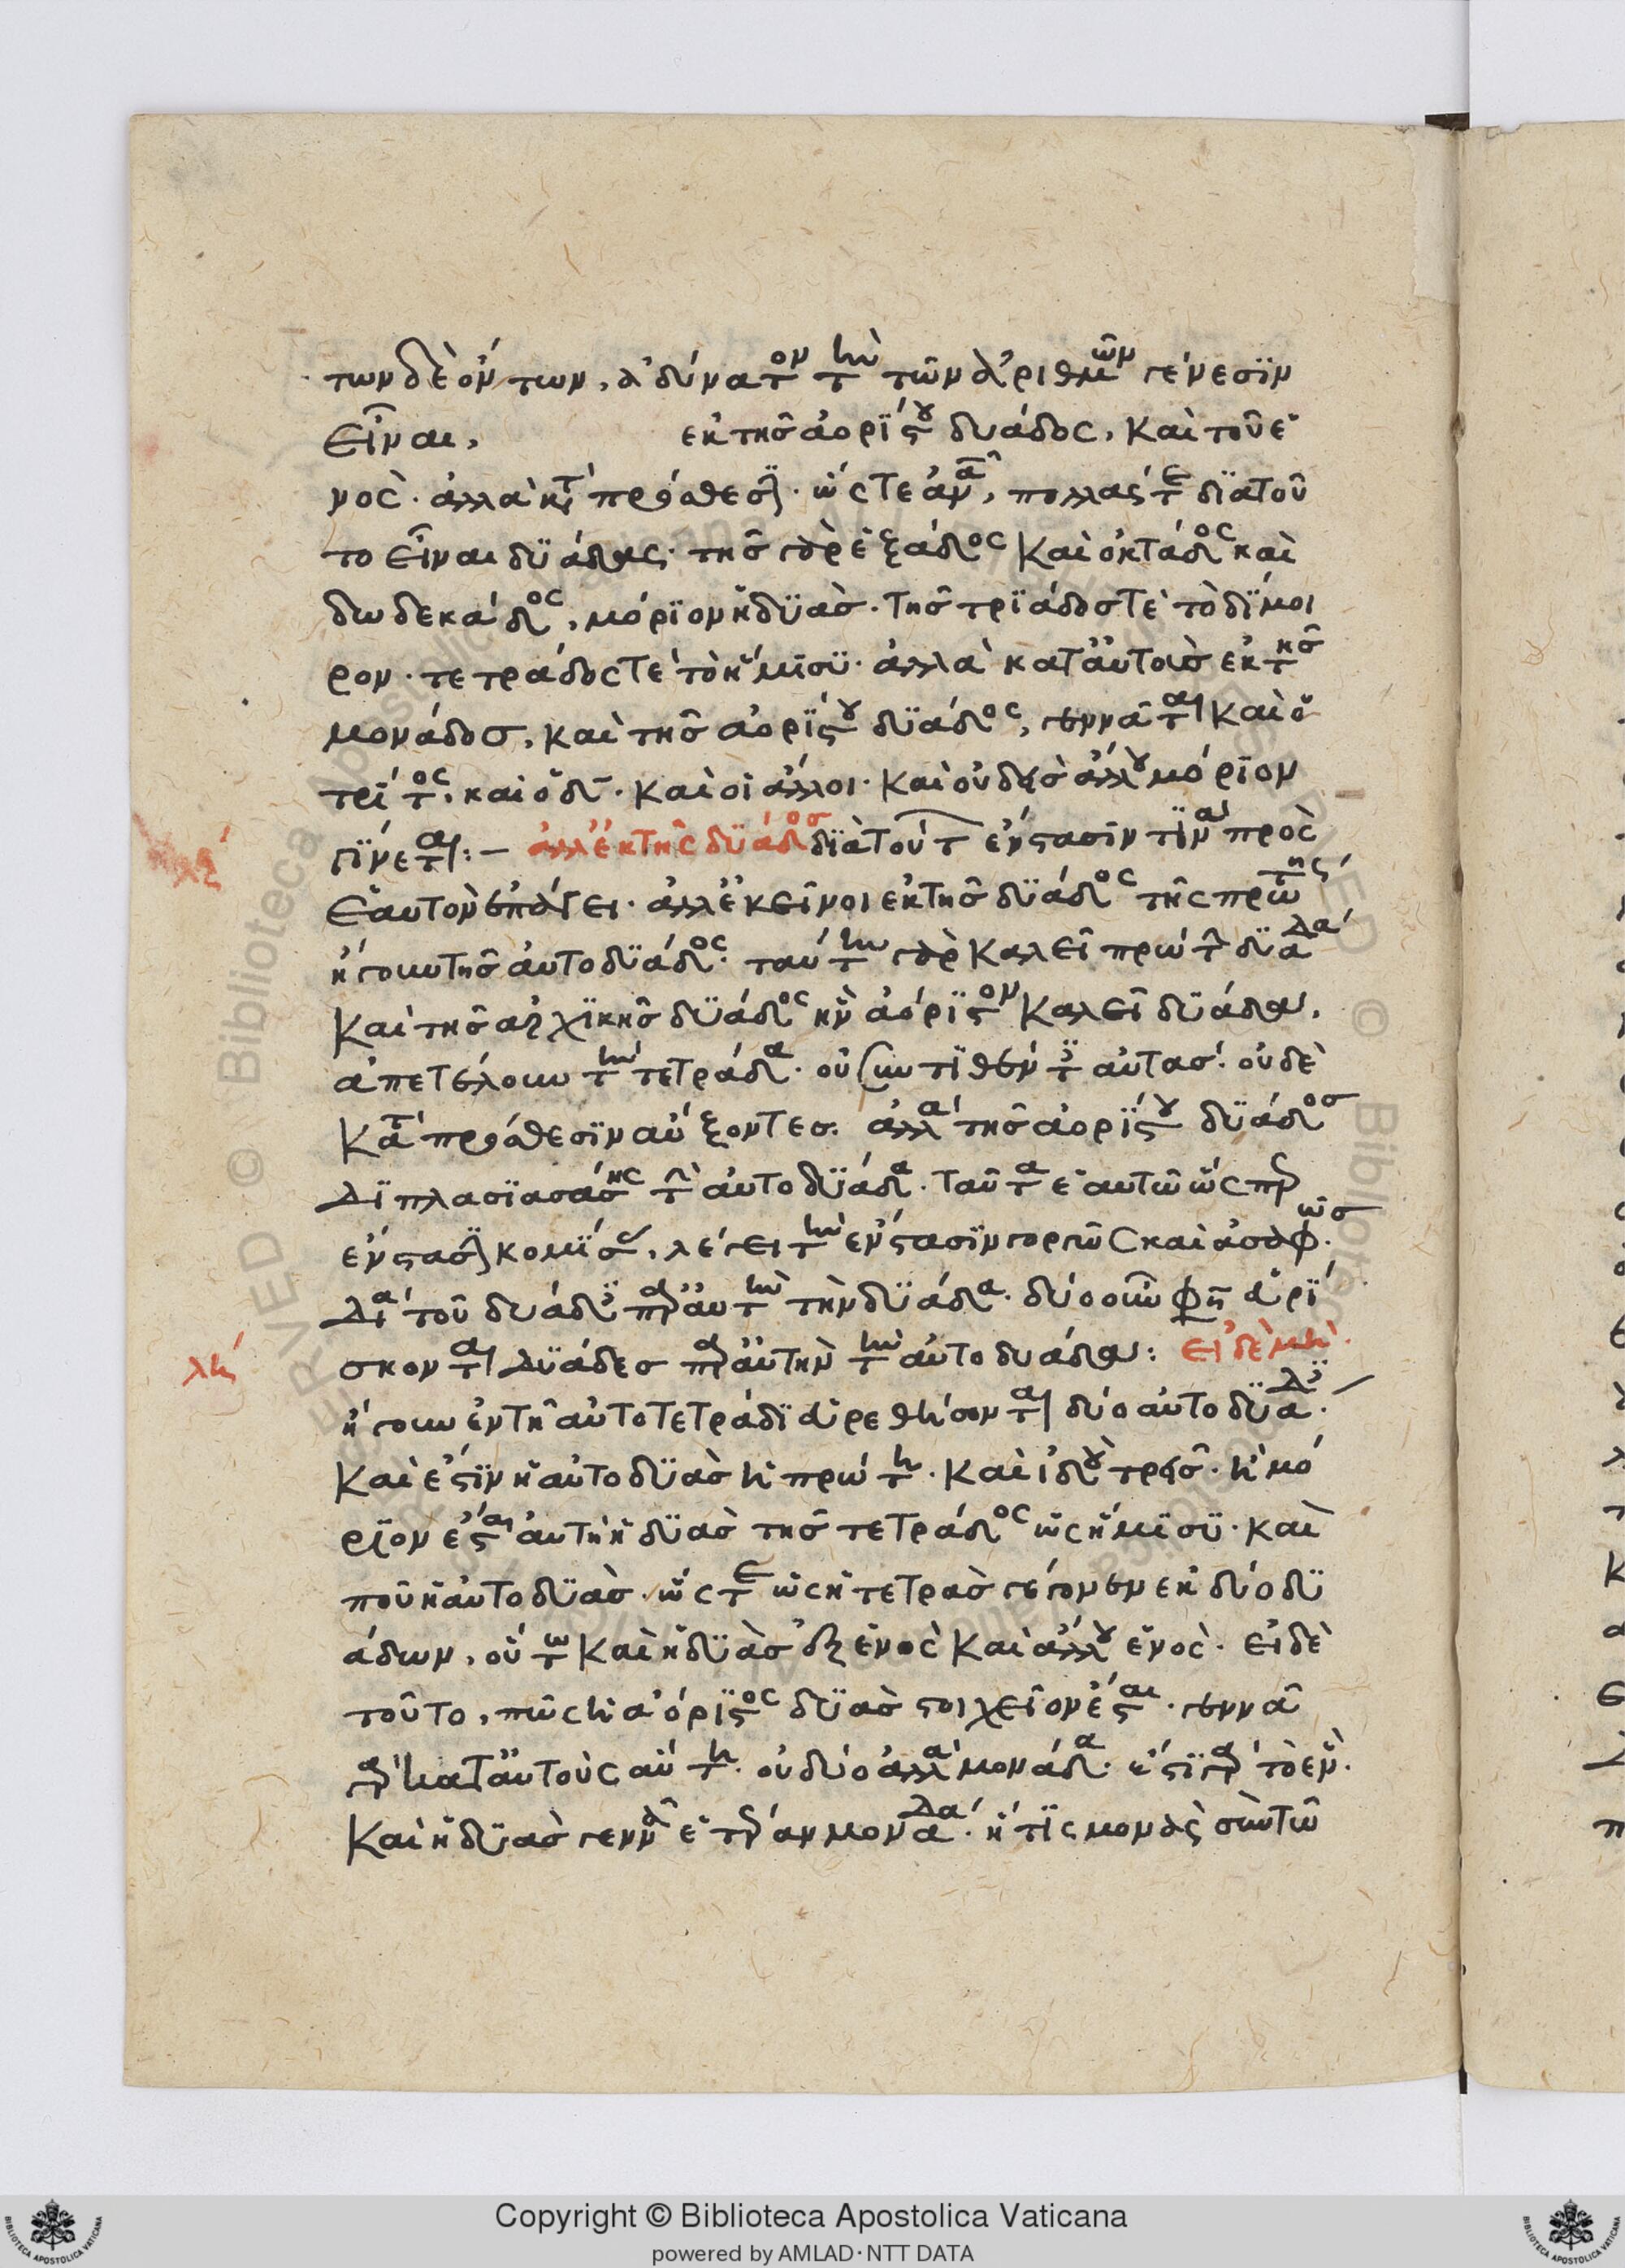 των δὲ ὄντων, ἀδύνατον τὴν τῶν ἀριθμῶν γένεσϊν
εἶναι, ἐκ τῆς ἀορίστου δυάδος, καὶ τοῦ ἑ
νός. ἀλλὰ κατὰ πρόσθεσιν. ὥστε ἀνάγκη, πολλάς τε διὰ τοῦ
το εἶναι δϋάδας. τῆς γὰρ ἑξάδος καὶ ὀκτάδος καὶ
δωδεκάδος, μόρϊον ἡ δϋάς. τῆς τρϊάδος τε τὸ δίμοι
ρον. τετράδος τε τὸ ἥμϊσϋ. ἀλλὰ κατ' αὐτοὺς ἐκ τῆς
μονάδος, καὶ τῆς ἀορίστου δϋάδος, γεννᾶται καὶ ὁ
τρίτος. καὶ ὁ δ. καὶ οἱ ἄλλοι. καὶ οὐδεὶς ἄλλου μόρϊον
γίνεται:- ἀλλ' ἐκ τῆς δϋάδος διὰ τούτων ἔνστασίν τινα πρὸς
ἑαυτὸν ἐπάγει. ἀλλ' ἐκεῖνοι ἐκ τῆς δϋάδος τῆς πρώτης
ἤγουν τῆς αὐτοδϋάδος. ταύτην γὰρ καλεῖ πρώτην δϋάδα
καὶ τῆς ἀρχϊκῆς δϋάδος ἣν ἀόρϊστον καλεῖ δϋάδα,
ἀπετέλουν τὴν τετράδα. οὐ συντϊθέντες αὐτάς. οὐδὲ
κατὰ πρόσθεσϊν αὔξοντες. ἀλλὰ τῆς ἀορίστου δϋάδος
διπλασϊασάσης τὴν αὐτοδϋάδα. ταῦτα ἑαυτῷ ὥσπερ
ἔνστασιν κομίσας, λέγει τὴν ἔνστασϊν γοργῶς καὶ ἀσαφῶς.
διὰ τοῦ δυάδες παρ' αὐτὴν τὴν δϋάδα. δύο οὖν φησιν εὑρί
σκονται δϋάδες παρ' αὐτὴν τὴν αὐτοδυάδα: εἰ δὲ μὴ
ἤγουν ἐν τῇ αὐτοτετράδϊ εὑρεθήσονται δύο αὐτοδϋάδες.
καὶ ἔστϊν ἡ αὐτοδϋὰς ἡ πρώτη. καὶ ἰδοὺ τρεῖς. ἢ μό
ρϊον ἔσται αὐτὴ ἡ δϋὰς τῆς τετράδος ὡς ἥμϊσϋ. καὶ
ποῦ ἡ αὐτοδϋάς. ὥστε ὡς ἡ τετρὰς γέγονεν ἐκ δύο δϋ
άδων, οὕτω καὶ ἡ δϋὰς ἐξ ἑνὸς καὶ ἄλλου ἑνός. εἰ δὲ
τοῦτο, πῶς ἡ ἀόρϊστος δϋὰς στοιχεῖον ἔσται. γεννᾶ
γὰρ κατ' αὐτοὺς αὕτη. οὐ δύο ἀλλὰ μονάδα. ἔστϊ γὰρ τὸ ἕν.
καὶ ἡ δϋὰς γεννᾶ ἑτέραν μονάδα. ἥτϊς μονὰς σὺν τῷ
λζ
λη
Copyright © Biblioteca Apostolica Vaticana
powered by AMLAD·NTT DATA